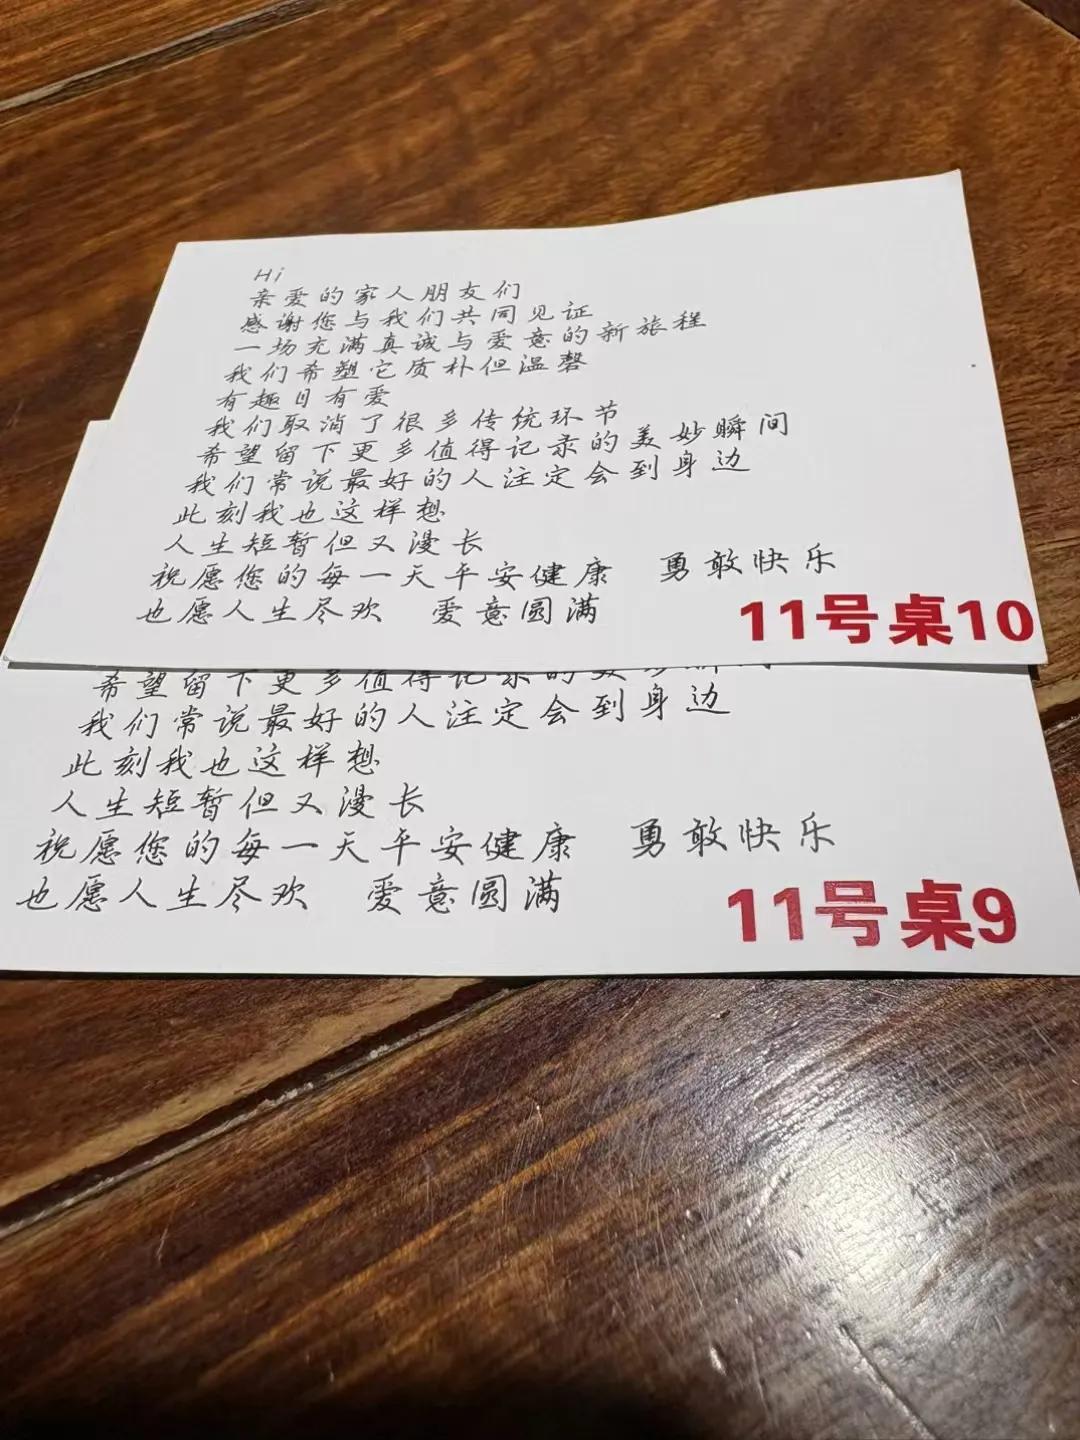 Hi
亲爱的家人朋友们
感谢您与我们共同见证
一场充满真诚与爱意的新旅程
我们希塑它质朴但温磬
有趣且有爱
我们取消了很多传统环节
希望留下更多值得记录的美妙瞬间
我们常说最好的人注定会到身边
此刻我也这样想
人生短暂但又漫长
祝愿您的每一天平安健康 勇敢快乐
也愿人生尽欢 爱意圆满
11号桌10
希望留下更多值得记录的美妙瞬间
我们常说最好的人注定会到身边
此刻我也这样想
人生短暂但又漫长
祝愿您的每一天平安健康 勇敢快乐
也愿人生尽欢 爱意圆满
11号桌9